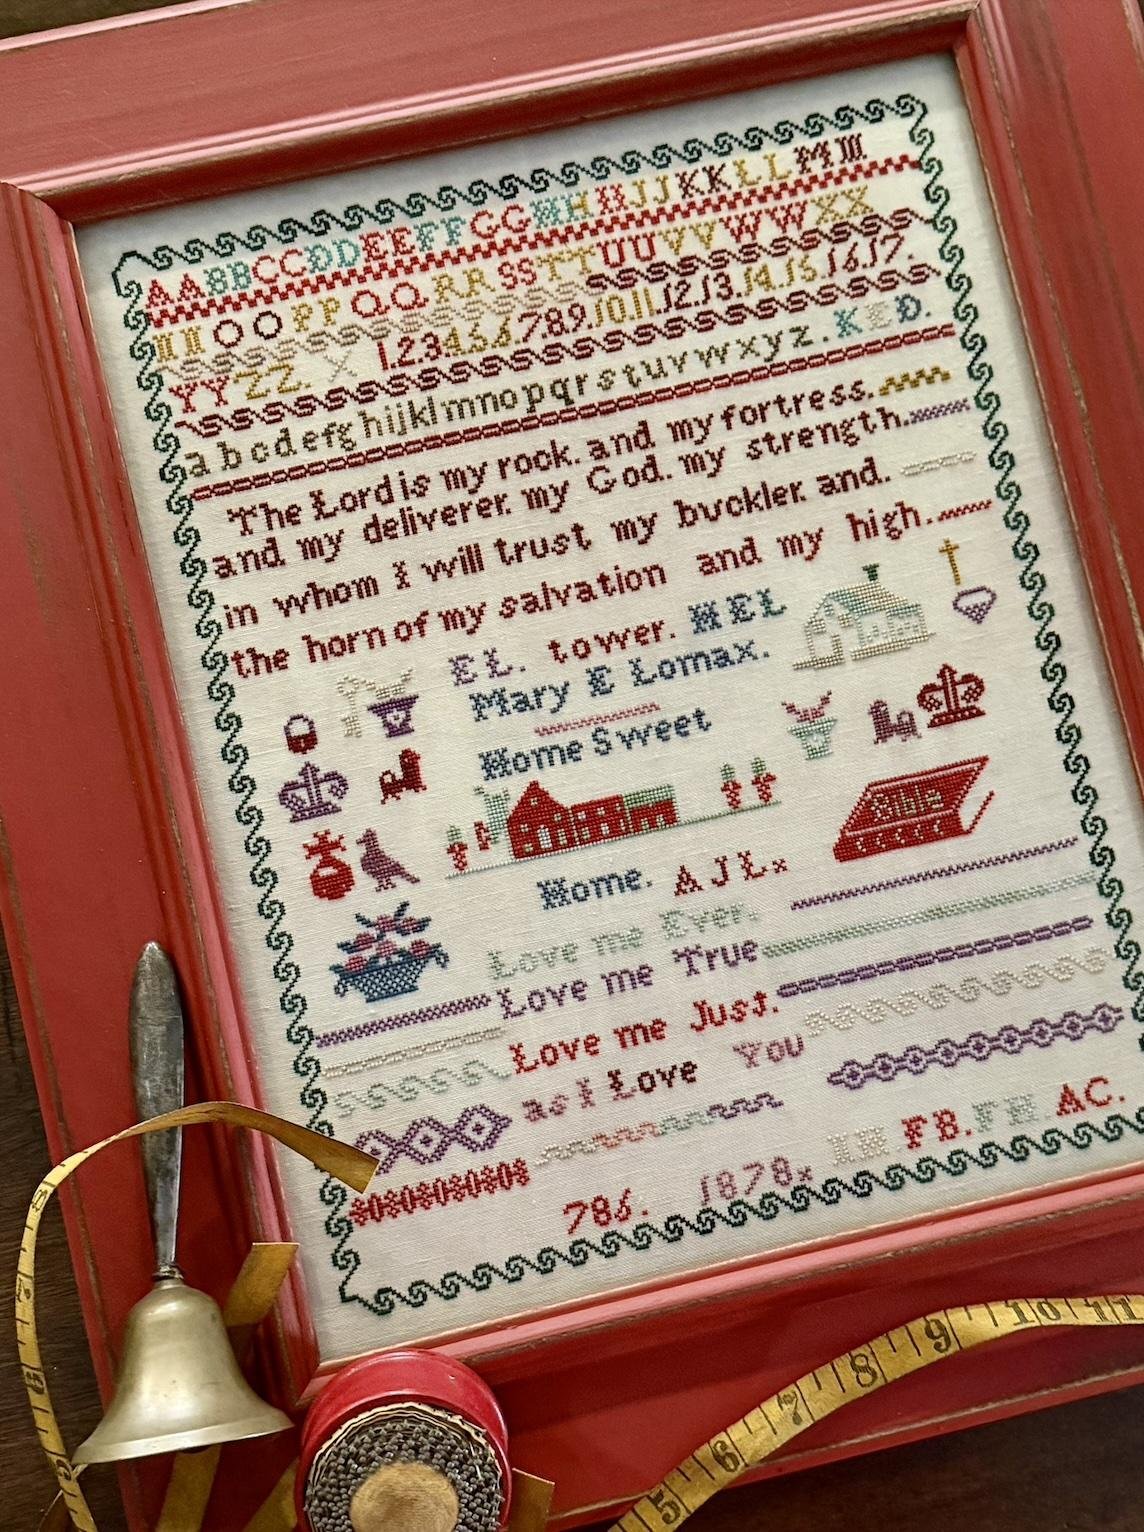 AABBCCDDEEFFGGHHIIJJKKLLMM
NNOOPPQQRRSSTTUUVVWWXX
YYZZ. X 1.2.3.4.5.6.7.8.9.10.11.12.13.14.15.16.17.
abcdefghijklmnopqrstuvwxyz. KED.
The Lord is my rock. and my fortress.
and my deliverer. my God. my strength.
in whom I will trust my buckler. and.
the horn of my salvation and my high.
EL. tower. HEL
Mary E Lomax.
Home Sweet
Bible
Home. AJLx
Love me Ever.
Love me True
Love me Just.
as I Love You
IH FB. FH. AC.
786. 1878x
5 6 7 8 9 10 11